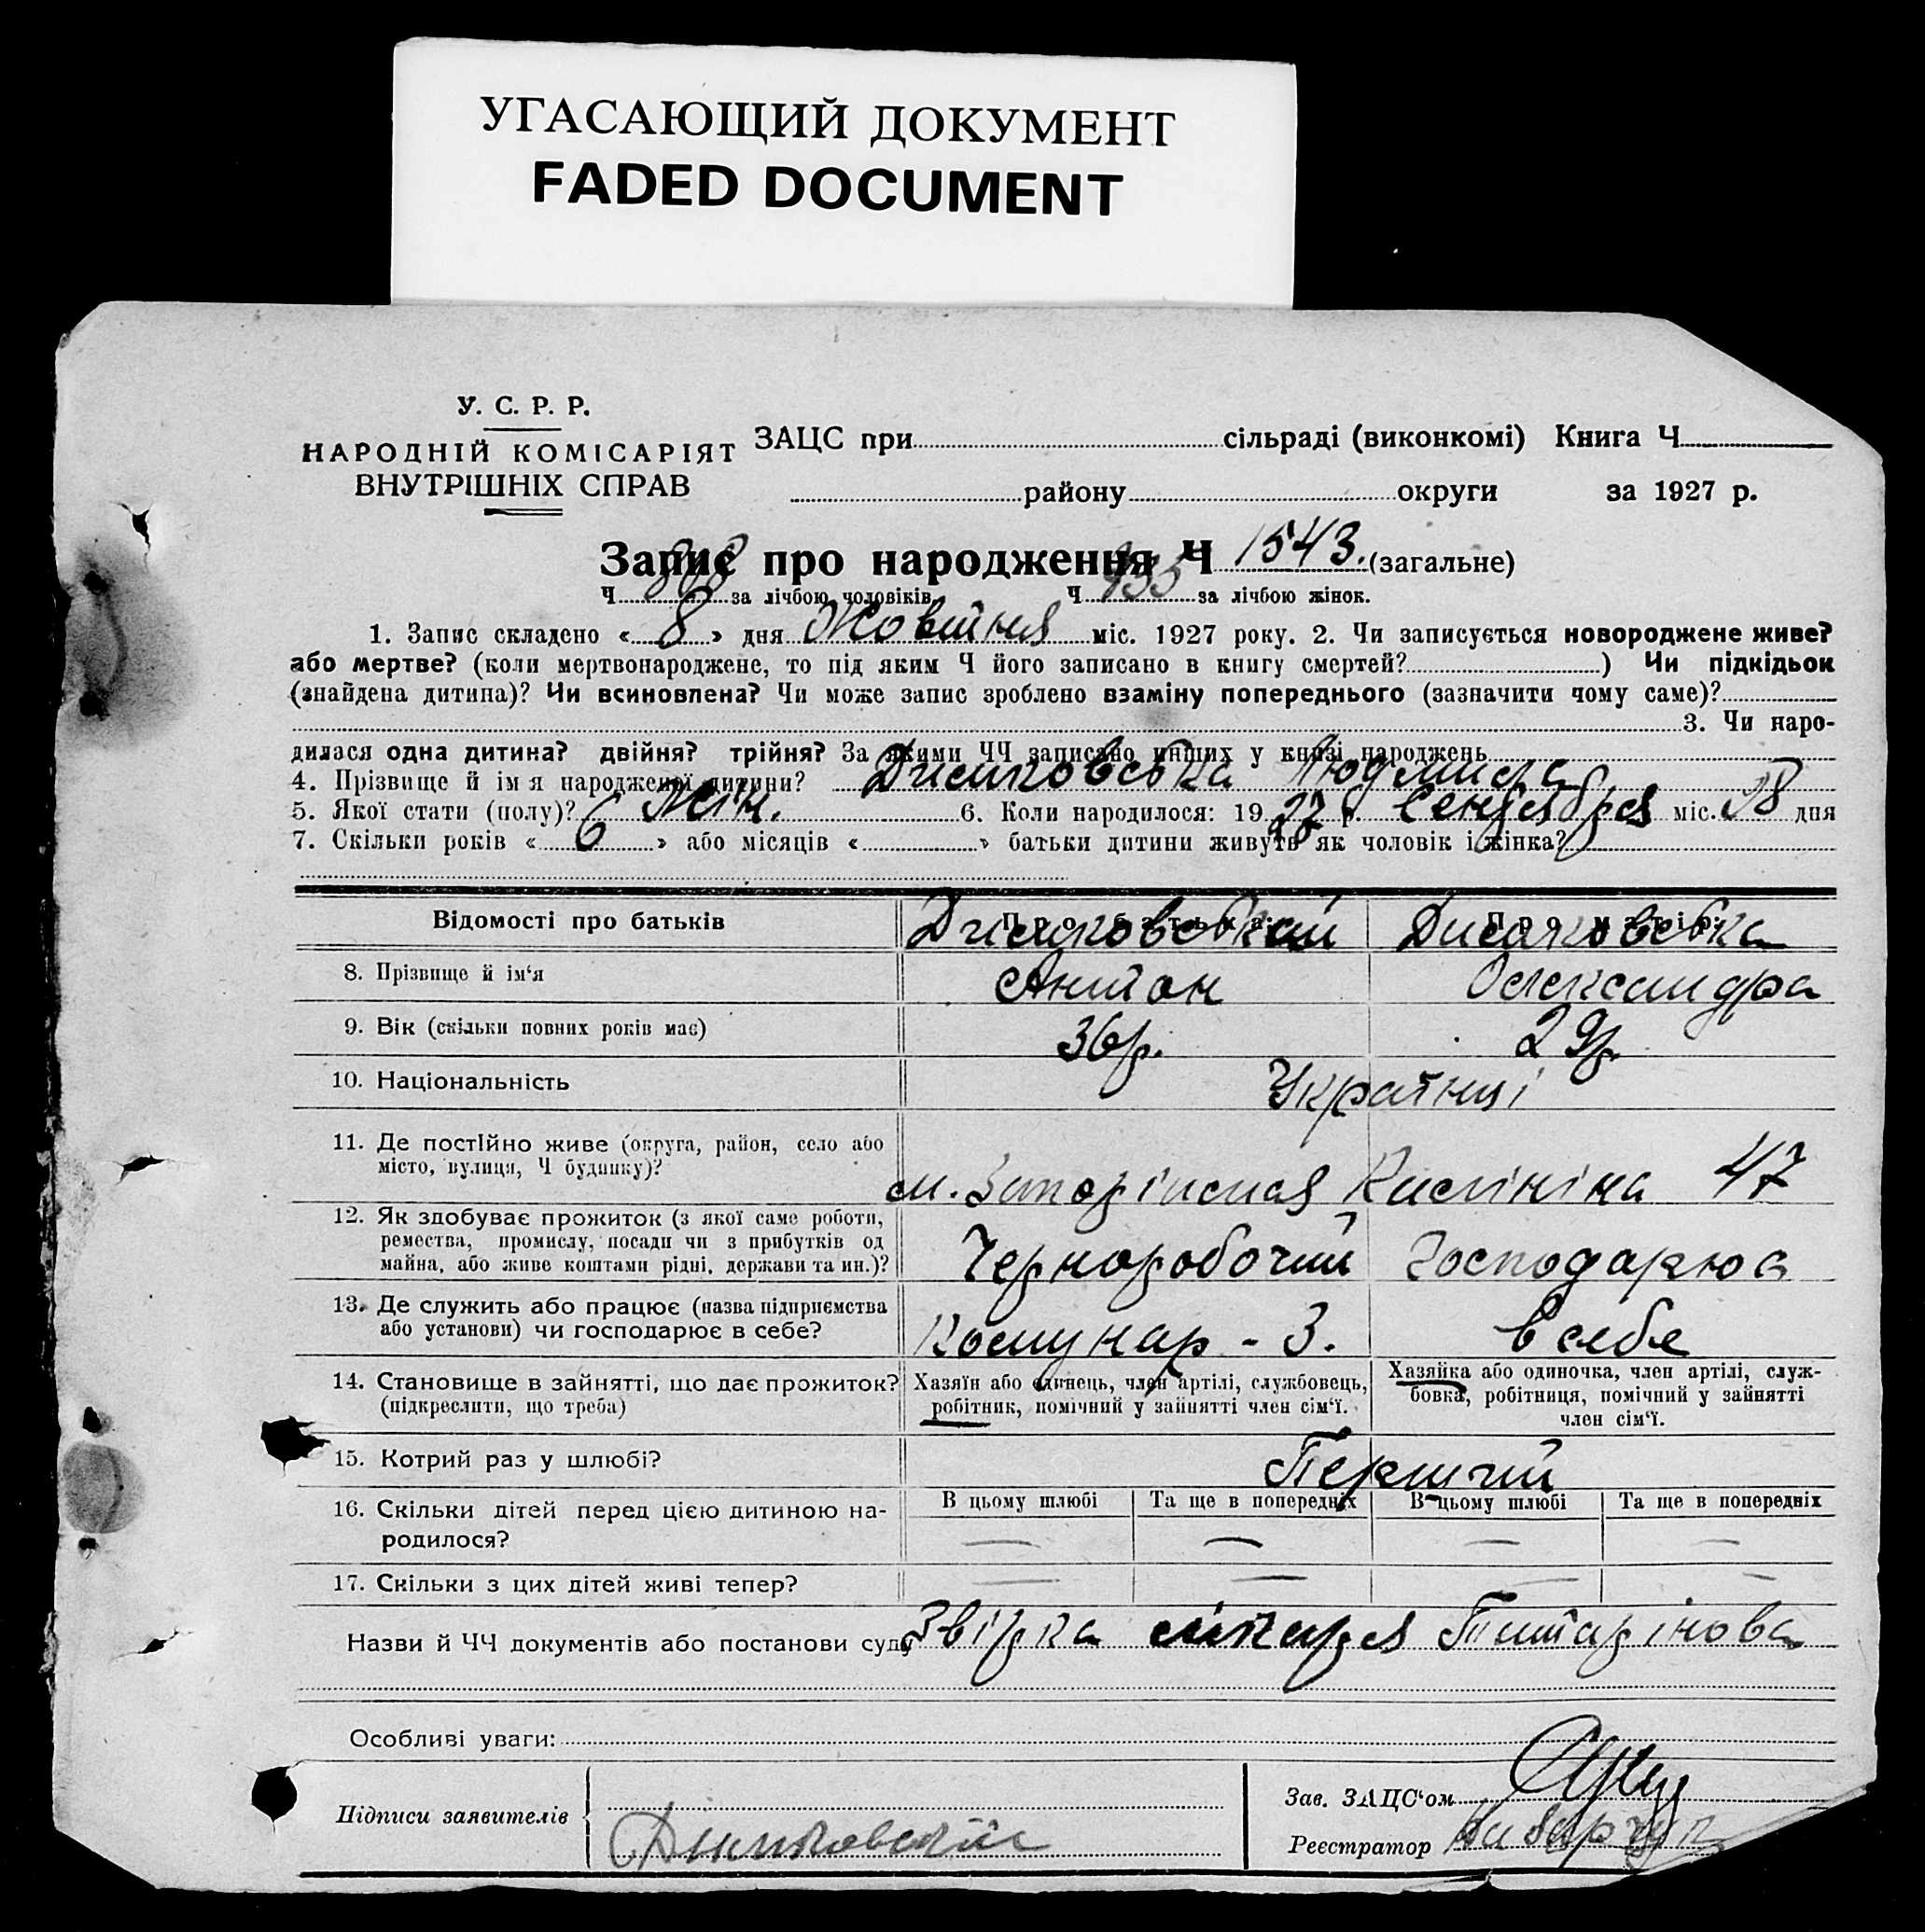 УГАСАЮЩИЙ ДОКУМЕНТ
FADED DOCUMENT
У. С. Р. Р.
НАРОДНІЙ КОМІСАРІЯТ
ВНУТРІШНІХ СПРАВ
ЗАЦС при сільраді (виконкомі) Книга Ч
району округи за 1927 р.
Запис про народження Ч 1543. (загальне)
Ч 808 за лічбою чоловіків Ч 735 за лічбою жінок.
1. Запис складено « 8 » дня Жовтня міс. 1927 року. 2. Чи записується новороджене живе?
або мертве? (коли мертвонароджене, то під яким Ч його записано в книгу смертей? ) Чи підкідьок
(знайдена дитина)? Чи всиновлена? Чи може запис зроблено взаміну попереднього (зазначити чому саме)?
3. Чи наро-
дилася одна дитина? двійня? трійня? За якими ЧЧ записано инших у книзі народжень
4. Прізвище й ім я народженої дитини? Людмила
5. Якої стати (полу)? Жін. 6. Коли народилося: 19 27 р. Сентября міс. 28 дня
7. Скільки років « 6 » або місяців « » батьки дитини живуть як чоловік і жінка?
Відомості про батьків Про батька: Про матір:
8. Прізвище й ім‘я Антон Олександра
9. Вік (скільки повних років має) 36р. 29р.
10. Національність Українці
11. Де постІйно живе (округа, район, село або
місто, вулиця, Ч будинку)?
м. 47
12. Як здобуває прожиток (з якої саме роботи,
ремества, промислу, посади чи з прибутків од
майна, або живе коштами рідні, держави та ин.)?
Черноробочий Господарює
13. Де служить або працює (назва підприємства
або установи) чи господарює в себе?
Комунар - 3. в себе
14. Становище в зайнятті, що дає прожиток?
(підкреслити, що треба)
Хазяїн або одинець, член артілі, службовець,
робітник, помічний у зайнятті член сім‘ї.
Хазяйка або одиночка, член артілі, служ-
бовка, робітниця, помічний у зайнятті
член сім‘ї.
15. Котрий раз у шлюбі? Перший
16. Скільки дітей перед цією дитиною на-
родилося?
В цьому шлюбі Та ще в попередніх В цьому шлюбі Та ще в попередніх
— — — —
17. Скільки з цих дітей живі тепер? — — — —
Назви й ЧЧ документів або постанови суду Звірка лікаря
Особливі уваги:
Підписи заявителів
Зав. ЗАЦС‘ом
Реєстратор